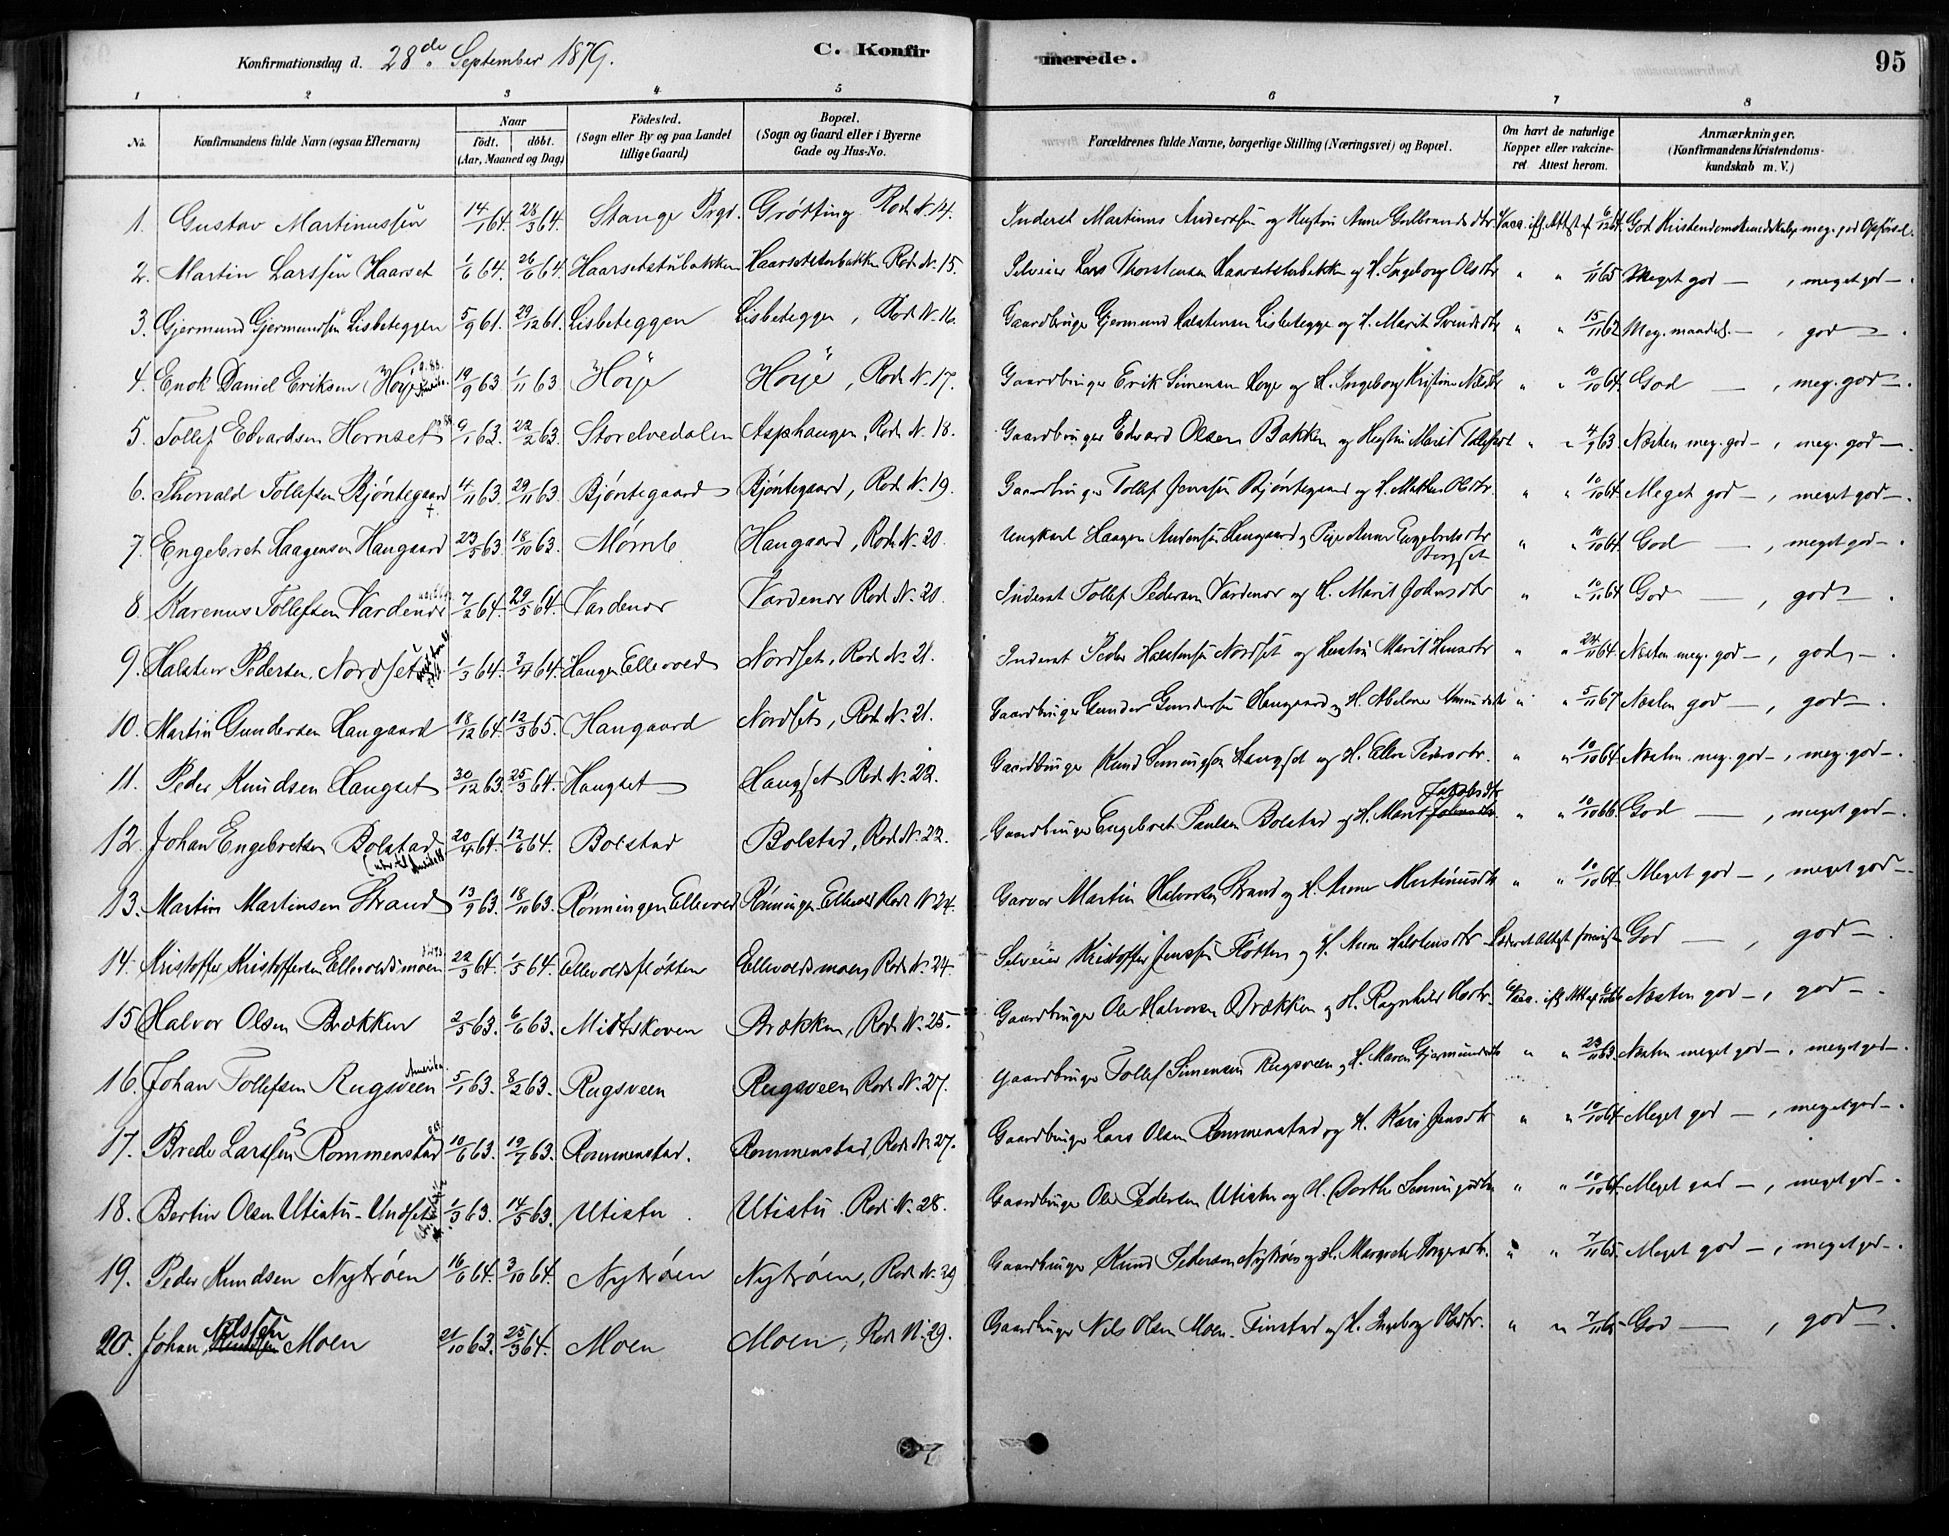 Konfirmationsdag d. 28de September 1879. C. Konfirmerede. 95
1 2 3 4 5 6 7 8
No. Konfirmandens fulde Navn (ogsaa Efternavn) Naar födt. döbt. (Aar, Maaned og Dag) Födested. (Sogn eller By og paa Landet tillige Gaard) Bopæl. (Sogn og Gaard eller i Byerne Gade og Hus-No. Forældrenes fulde Navne, borgerlige Stilling (Næringsvei) og Bopæl. Om havt de naturlige Kopper eller vakcineret Attest herom. Anmærkninger. (Konfirmandens Kristendomskundskab m. V.)
1. Gustav Martinussen 14/1 64. 28/3 64. Stange Prgd. Grötting Rode N. 14. Inderst Martinus Andersen og Hustru Anne Gulbrandsdtr Vacc. ifg. Attest af 6/12 64. God Kristendomskundskab, meg. god Opförsel.
2. Martin Larssen Haarset 1/6 64. 26/6 64. Haarsetstubakken Haarsetstubakken Rode N. 15. Selveier Lars Thorstensen Haarsetstubakken og H. Ingeborg Olsdtr " " 1/11 65 Meget god — , meget god —.
3. Gjermund Gjermundsen Lisbeteggen 5/9 61. 29/12 61. Lisbeteggen Lisbeteggen, Rode N. 16. Gaardbruger Gjermund Halstensen Lisbetegge og H. Marit Svendsdtr " " 15/11 62 Meg. maadel. — , god — .
4. Enok Daniel Eriksen Höye 19/9 63 1/11 63 Höye Höye, Rode N. 17. Gaardbruger Erik Simensen Höye og H. Ingeborg Kristine Nilsdtr " " 10/10 64. God — , meg. god —.
5. Tollef Edvardsen Hornset 9/1 63. 22/2 63. Storelvedalen Asphaugen, Rode N. 18. Gaardbruger Edvard Olsen Bakken og Hustru Marit Tollefsdtr " " 4/9 63. Næsten meg. god —, meg. god —.
6. Thorvald Tollefsen Bjöntegaard † 4/11 63. 29/11 63. Bjöntegaard Bjöntegaard, Rode N. 19. Gaardbruger Tollef Jonssen Bjöntegaard og H. Mathea Olsdtr. " " 10/10 64. Meget god —, meget god —.
7. Engebret Haagensen Haugaard 23/5 63. 18/10 63. Mömb Haugaard, Rode N. 20. Ungkarl Haagen Andersen Haugaard og Pige Anne Engebretsdtr Bergset " " 10/10 64. God — , meget god —.
8. Karenus Tollefsen Vardenær 7/2 64. 29/5 64. Vardenær Vardenær Rode N. 20. Inderst Tollef Pedersen Vardenær og H. Marit Johnsdtr " " 10/11 64 God — , god — .
9. Halstein Pedersen Nordset 1/3 64. 3/4 64. Haugen Ellevold Nordset, Rode N. 21. Inderst Peder Halstensen Nordset og Hustru Marit Hansdtr " " 24/11 64. Næsten meg. god —, god —.
10. Martin Gundersen Haugaard 18/12 64. 12/3 65. Haugaard Nordset, Rode N. 21. Gaardbruger Gunder Gundersen Haugaard og H. Abelone Amundsdtr " " 5/11 67 Næsten god —, god —.
11. Peder Knudsen Haugset 30/12 63. 25/3 64. Haugset Haugset Rode N. 22. Gaardbruger Knud Semmingsen Haugset og H. Ellen Pedersdtr. " " 10/10 64. Næsten meg. god —, meg. god —.
12. Johan Engebretsen Bolstad 20/4 64. 12/6 64. Bolstad Bolstad, Rode N. 22. Gaardbruger Engebret Paulsen Bolstad og H. Marit Johnsdtr. Jakobsdtr " " 10/10 66. God — , meget god —.
13. Martin Martinsen Strand 13/9 63. 18/10 63. Rönningen Ellevold Rönningen Ellevold Rode N. 24. Garver Martin Halvorsen Strand og H. Anne Martinusdtr " " 10/10 64. Meget god —, meget god —.
14. Kristoffer Kristoffersen Ellevoldsmoen 22/3 64. 1/5 64. Ellevoldsfløtten Ellevoldsmoen, Rode N. 24. Selveier Kristoffer Jenssen Fløtten og H. Anne Halstensdtr God — , god —.
15 Halvor Olsen Brækken 2/5 63. 6/6 63. Midtskoven Brækken, Rode N. 25. Gaardbruger Ole Halvorsen Brækken og H. Ragnhild Olsdtr. Næsten god —, god —.
16. Johan Tollefsen Rugsveen Amerika 5/1 63. 8/2 63. Rugsveen Rugsveen Rode N. 27. Gaardbruger Tollef Simensen Rugsveen og H. Maren Gjermundsdtr " " 23/11 63. Næsten meget god —, meget god —.
17. Brede Larssen Rommenstad 10/6 63. 19/7 63. Rommenstad. Rommenstad, Rode N. 27. Gaardbruger Lars Olsen Rommenstad og H. Kari Jensdtr " " 10/10 64. Meget god —, meget god —.
18. Bertin Olsen Utistu-Undset 1/3 63. 14/5 63. Utistu. Utistu. Rode N. 28. Gaardbruger Ole Pedersen Utistu og H. Dorthe Semmingsdtr " " 10/10 64. Meget god —, meget god —.
19. Peder Knudsen Nytröen 16/6 64. 3/10 64. Nytröen Nytröen, Rode N. 29 Gaardbruger Knud Pedersen Nytröen og H. Margrete Borgersdtr. " " 7/11 65. Meget god —, meget god —.
20. Johan Knudsen Nilssen Moen 21/10 63. 25/3 64. Moen Moen, Rode N. 29. Gaardbruger Nils Olsen Moen Finstad og H. Ingeborg Olsdtr. " " 7/11 65. God — , god —.